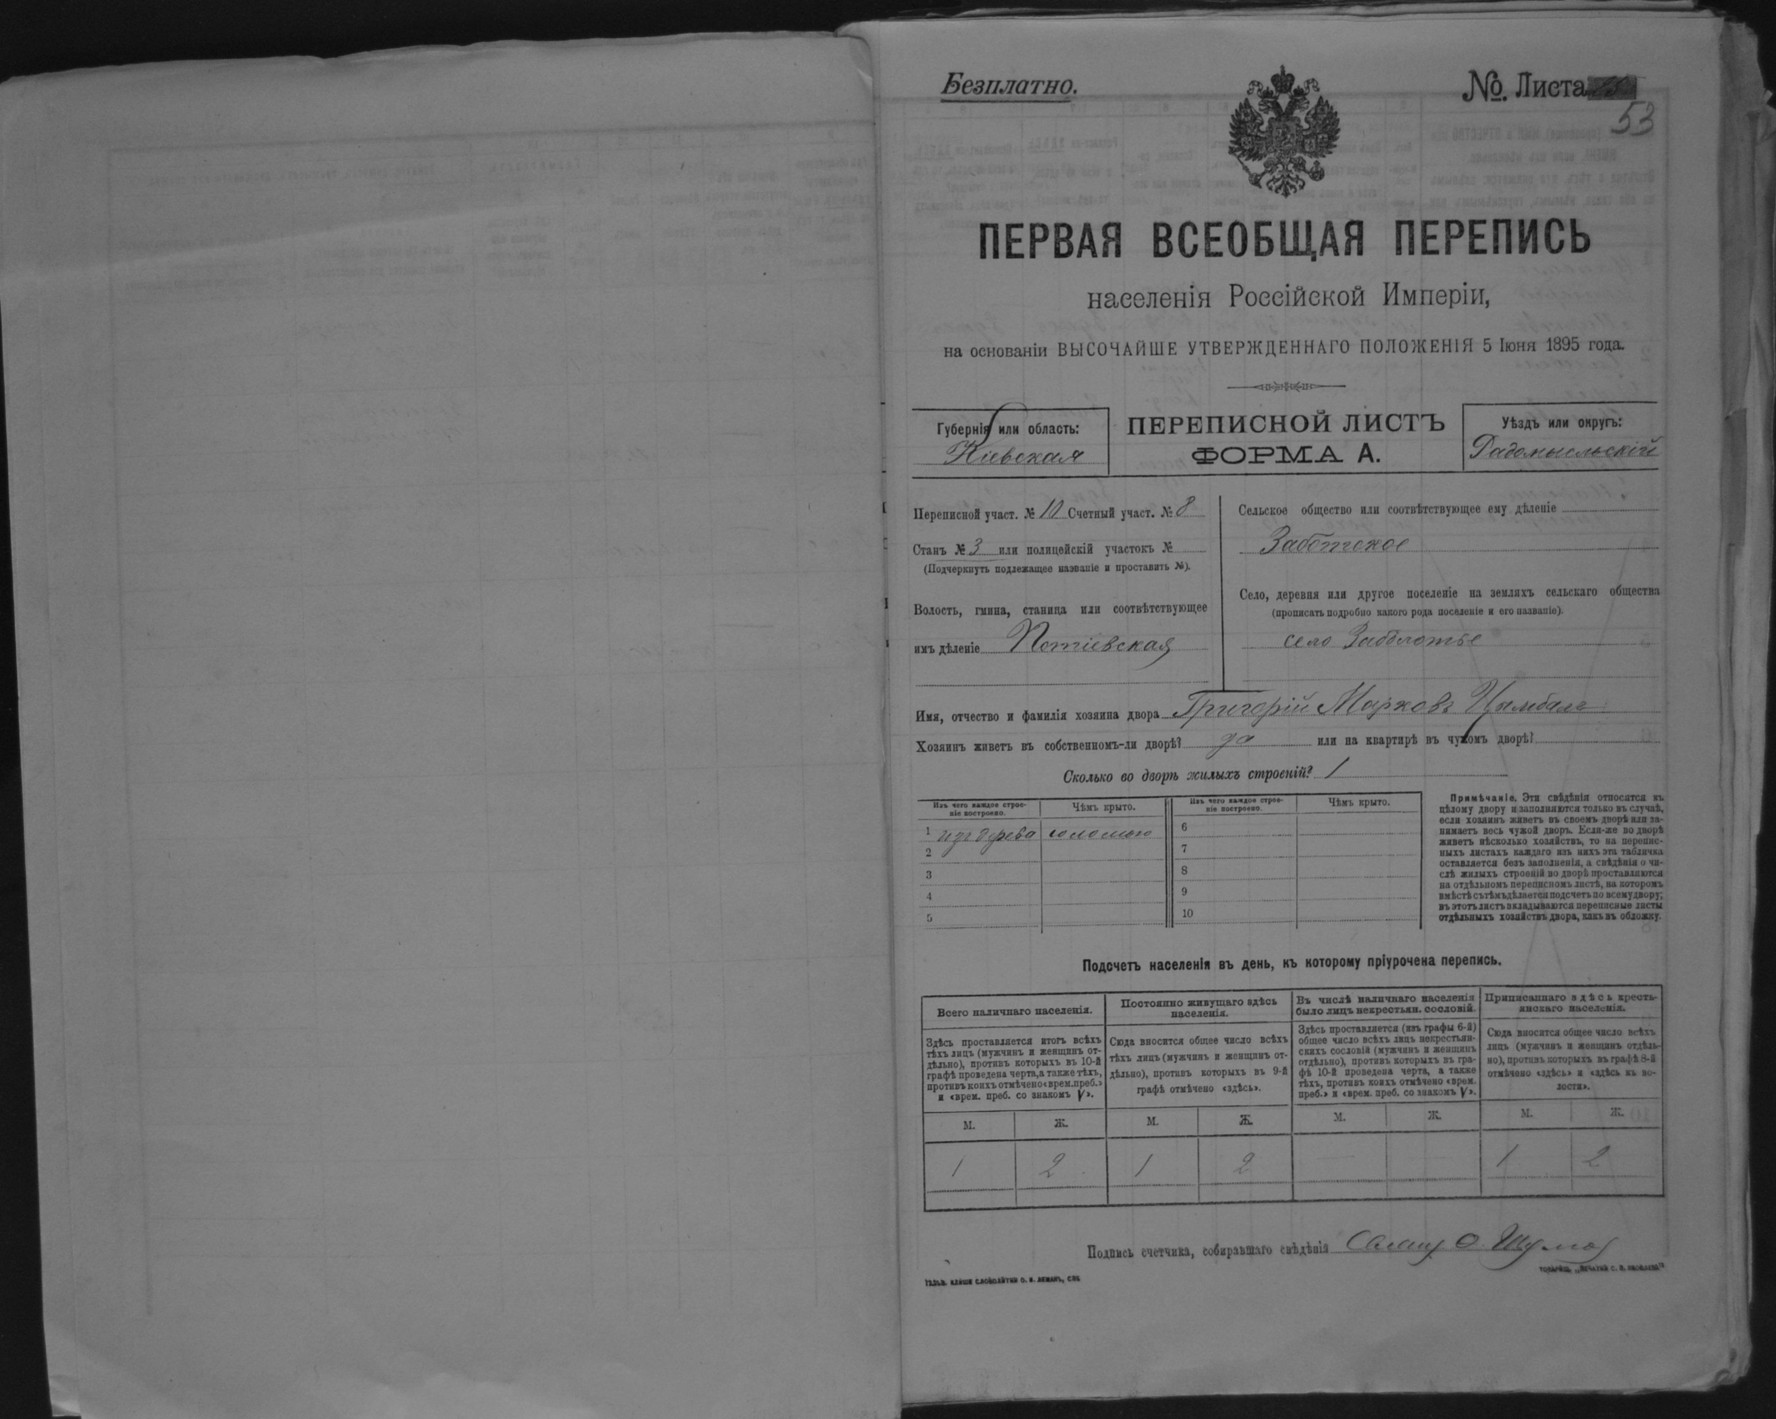 Безплатно.
№ Листа
53
ПЕРВАЯ ВСЕОБЩАЯ ПЕРЕПИСЬ
населенія Россійской Имперіи,
на основаніи ВЫСОЧАЙШЕ УТВЕРЖДЕННАГО ПОЛОЖЕНІЯ 5 Іюня 1895 года.
Губернія или область:
Кіевская
ПЕРЕПИСНОЙ ЛИСТЪ
ФОРМА А.
Уѣздъ или округъ:
Радомысльскій
Переписной участ. № 10 Счетный участ. № 8
Станъ № 3 или полицейскій участокъ №
(Подчеркнуть подлежащее названіе и проставить №).
Волость, гмина, станица или соотвѣтствующее
имъ дѣленіе Потіевская
Сельское общество или соотвѣтствующее ему дѣленіе
Село, деревня или другое поселеніе на земляхъ сельскаго общества
(прописать подробно какого рода поселеніе и его названіе).
село Заболотье
Имя, отчество и фамилія хозяина двора Григорій Марковъ Цымбалъ
Хозяинъ живетъ въ собственномъ-ли дворѣ? да или на квартирѣ въ чужомъ дворѣ?
Сколько во дворѣ жилыхъ строеній? 1
Изъ чего каждое строе-
ніе построено.
Чѣмъ крыто.
1 изъ дерева соломою
2
3
4
5
Изъ чего каждое строе-
ніе построено.
Чѣмъ крыто.
6
7
8
9
10
Примѣчаніе. Эти свѣдѣнія относятся къ
цѣлому двору и заполняются только въ случаѣ,
если хозяинъ живетъ въ своемъ дворѣ или за-
нимаетъ весь чужой дворъ. Если-же во дворѣ
живетъ нѣсколько хозяйствъ, то на перепис-
ныхъ листахъ каждаго изъ нихъ эта табличка
оставляется безъ заполненія, а свѣдѣнія о чи-
слѣ жилыхъ строеній во дворѣ проставляются
на отдѣльномъ переписномъ листѣ, на которомъ
вмѣстѣ съ тѣмъ дѣлается подсчетъ по всему двору;
въ этотъ листъ вкладываются переписные листы
отдѣльныхъ хозяйствъ двора, какъ въ обложку.
Подсчетъ населенія въ день, къ которому пріурочена перепись.
Всего наличнаго населенія.
Здѣсь проставляется итогъ всѣхъ
тѣхъ лицъ (мужчинъ и женщинъ от-
дѣльно), противъ которыхъ въ 10-й
графѣ проведена черта, а также тѣхъ,
противъ коихъ отмѣчено «врем. преб.»
и «врем. преб. со знакомъ V».
М. Ж.
1 2
Постоянно живущаго здѣсь
населенія.
Сюда вносится общее число всѣхъ
тѣхъ лицъ (мужчинъ и женщинъ от-
дѣльно), противъ которыхъ въ 9-й
графѣ отмѣчено «здѣсь».
М. Ж.
1 2
Въ числѣ наличнаго населенія
было лицъ некрестьян. сословій.
Здѣсь проставляется (изъ графы 6-й)
общее число всѣхъ лицъ некрестьян-
скихъ сословій (мужчинъ и женщинъ
отдѣльно), противъ которыхъ въ гра-
фѣ 10-й проведена черта, а также
тѣхъ, противъ коихъ отмѣчено «врем.
преб.» и «врем. преб. со знакомъ V».
М. Ж.
Приписаннаго здѣсь кресть-
янскаго населенія.
Сюда вносится общее число всѣхъ
лицъ (мужчинъ и женщинъ отдѣль-
но), противъ которыхъ въ графѣ 8-й
отмѣчено «здѣсь» и «здѣсь въ во-
лости».
М. Ж.
1 2
Подпись счетчика, собиравшаго свѣдѣнія